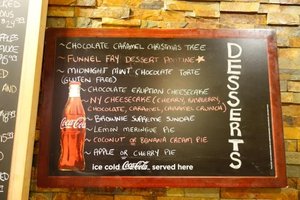 ~ CHOCOLATE CARAMEL CHRISTMAS TREE
~ FUNNEL FRY DESSERT POUTINE ★
~ MIDNIGHT MINT CHOCOLATE TORTE
(GLUTEN FREE)
~ CHOCOLATE ERUPTION CHEESECAKE
~ NY CHEESECAKE (CHERRY, RASPBERRY,
CHOCOLATE, CARAMEL, CARAMEL CRUNCH)
~ BROWNIE SUPREME SUNDAE
~ LEMON MERINGUE PIE
~ COCONUT OR BANANA CREAM PIE
~ APPLE OR CHERRY PIE
DESSERTS
Coca-Cola
ice cold Coca-Cola, served here